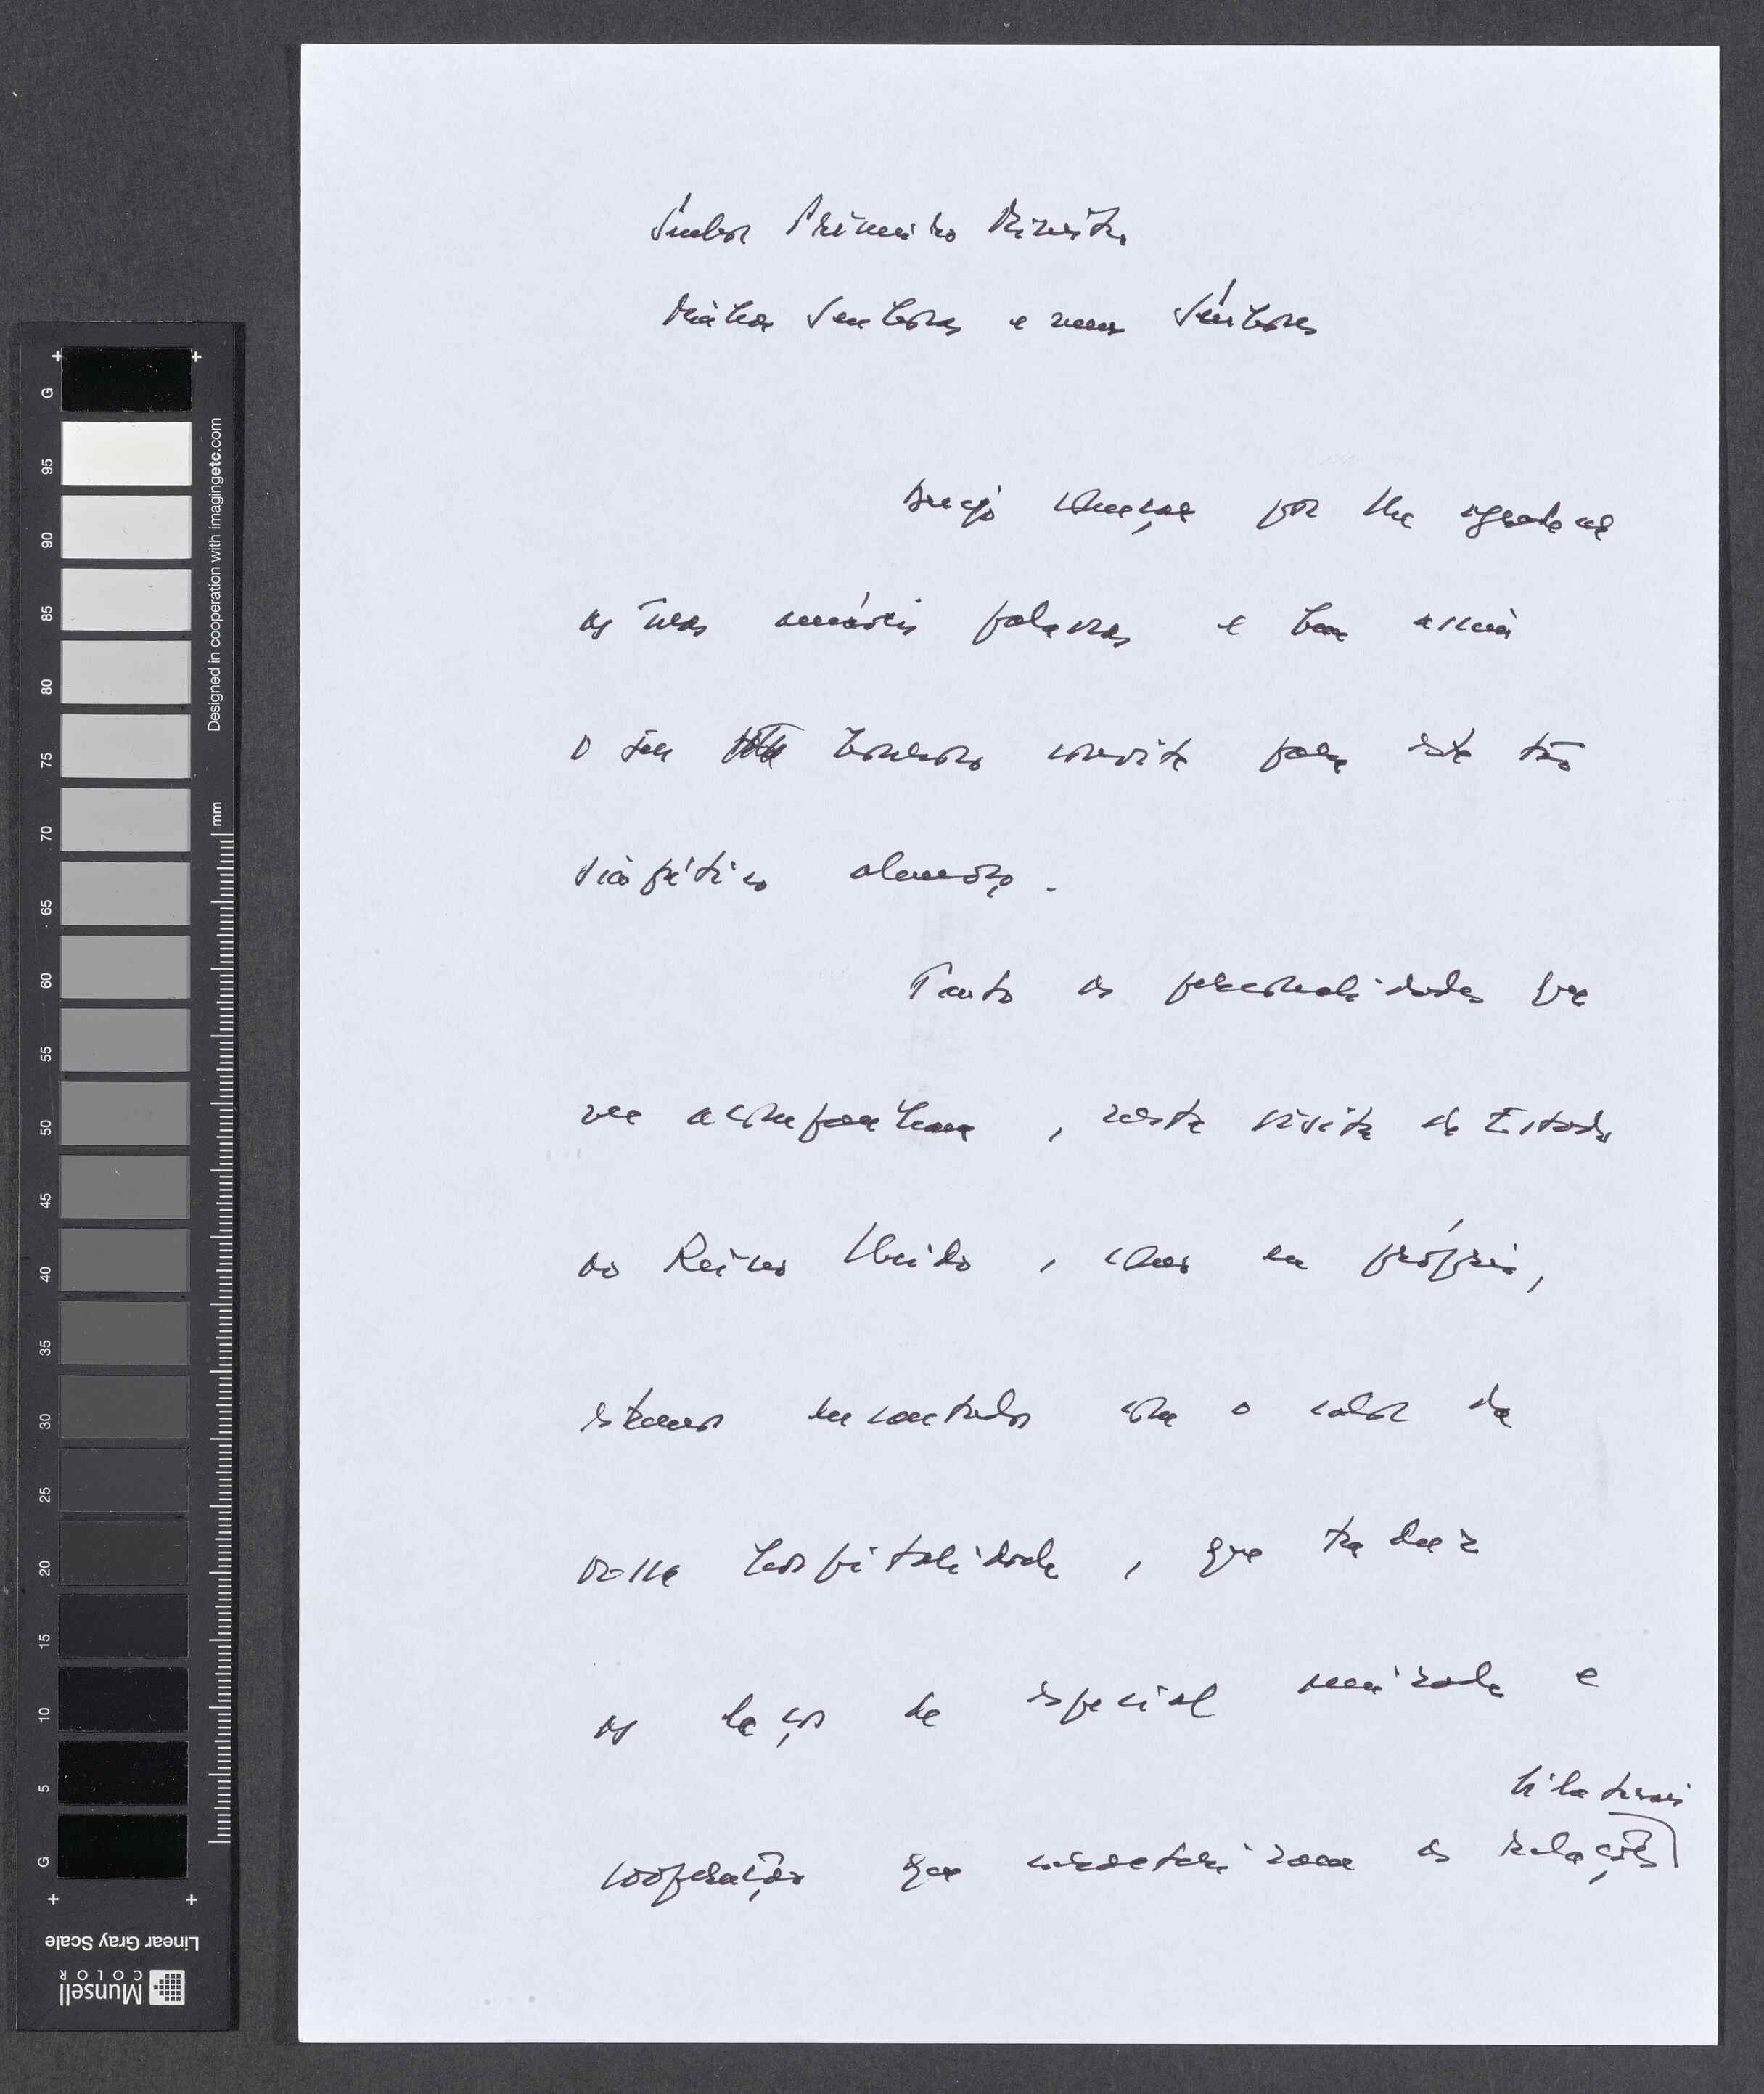 Senhor Primeiro Ministro
Minhas Senhoras e meus Senhores
Desejo começar por lhe agradecer
as suas amáveis palavras e bem assim
o seu honroso convite para este tão
simpático almoço.
Tanto as personalidades que
me acompanham, nesta visita de Estado
ao Reino Unido, como eu próprio,
estamos encantados com o calor da
vossa hospitalidade, que traduz
os laços de especial amizade e
bilaterais
cooperação que caracterizam as relações
G
95
90
85
80
75
70
65
60
55
50
45
40
35
30
25
20
15
10
5
G
Designed in cooperation with imagingetc.com
mm
Linear Gray Scale
Munsell
COLOR